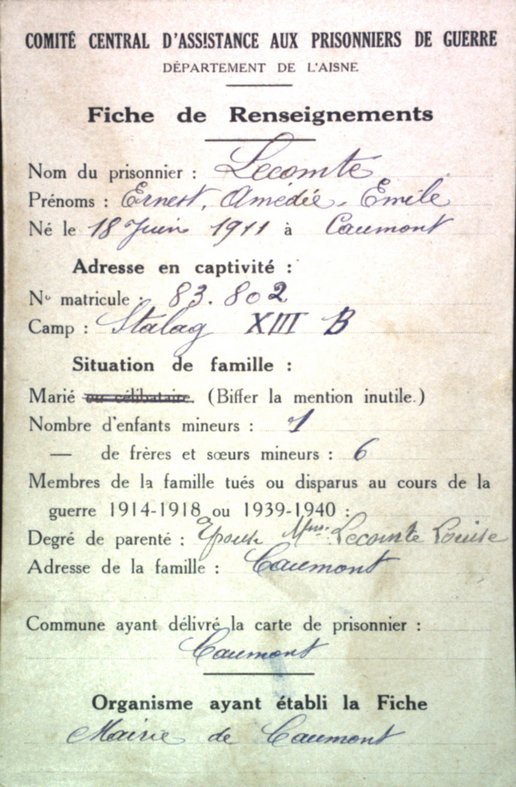 COMITÉ CENTRAL D'ASSISTANCE AUX PRISONNIERS DE GUERRE
DÉPARTEMENT DE L'AISNE
Fiche de Renseignements
Nom du prisonnier : Lecomte
Prénoms : Ernest, Amédée, Emile
Né le 18 Juin 1911 à Caumont
Adresse en captivité :
No matricule : 83.802
Camp : Stalag XIII B
Situation de famille :
Marié ou célibataire. (Biffer la mention inutile.)
Nombre d'enfants mineurs : 1
— de frères et sœurs mineurs : 6
Membres de la famille tués ou disparus au cours de la
guerre 1914-1918 ou 1939-1940 :
Degré de parenté : Epouse Mme Lecomte Louise
Adresse de la famille : Caumont
Commune ayant délivré la carte de prisonnier :
Caumont
Organisme ayant établi la Fiche
Mairie de Caumont